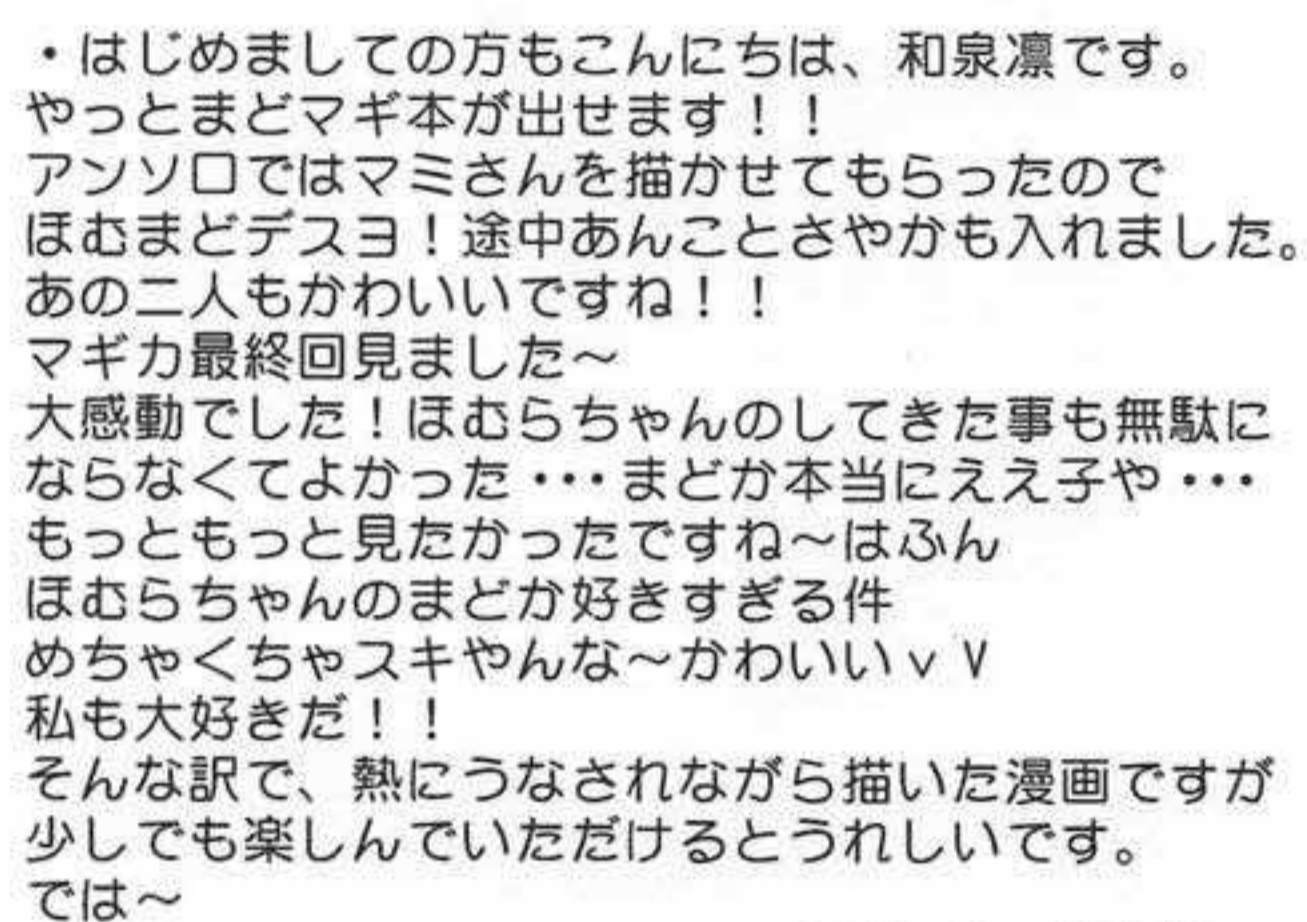 ・はじめましての方もこんにちは、和泉凛です。
やっとまどマギ本が出せます！！
アンソロではマミさんを描かせてもらったので
ほむまどデスヨ！途中あんことさやかも入れました。
あの二人もかわいいですね！！
マギカ最終回見ました～
大感動でした！ほむらちゃんのしてきた事も無駄に
ならなくてよかった・・・まどか本当にええ子や・・・
もっともっと見たかったですね～はふん
ほむらちゃんのまどか好きすぎる件
めちゃくちゃスキやんな～かわいいｖＶ
私も大好きだ！！
そんな訳で、熱にうなされながら描いた漫画ですが
少しでも楽しんでいただけるとうれしいです。
では～